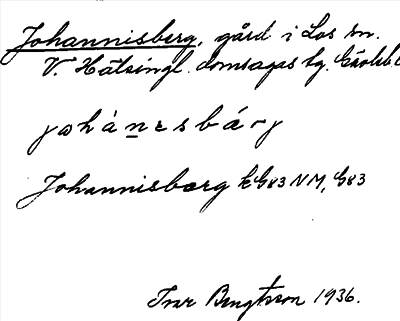 Johannisberg, gård i Los sn.
V. Hälsingl. domsagas tg. Gävleb
johánɛsbárj
Johannisberg k G83 NM, G83
Ivar Bengtsson 1936.